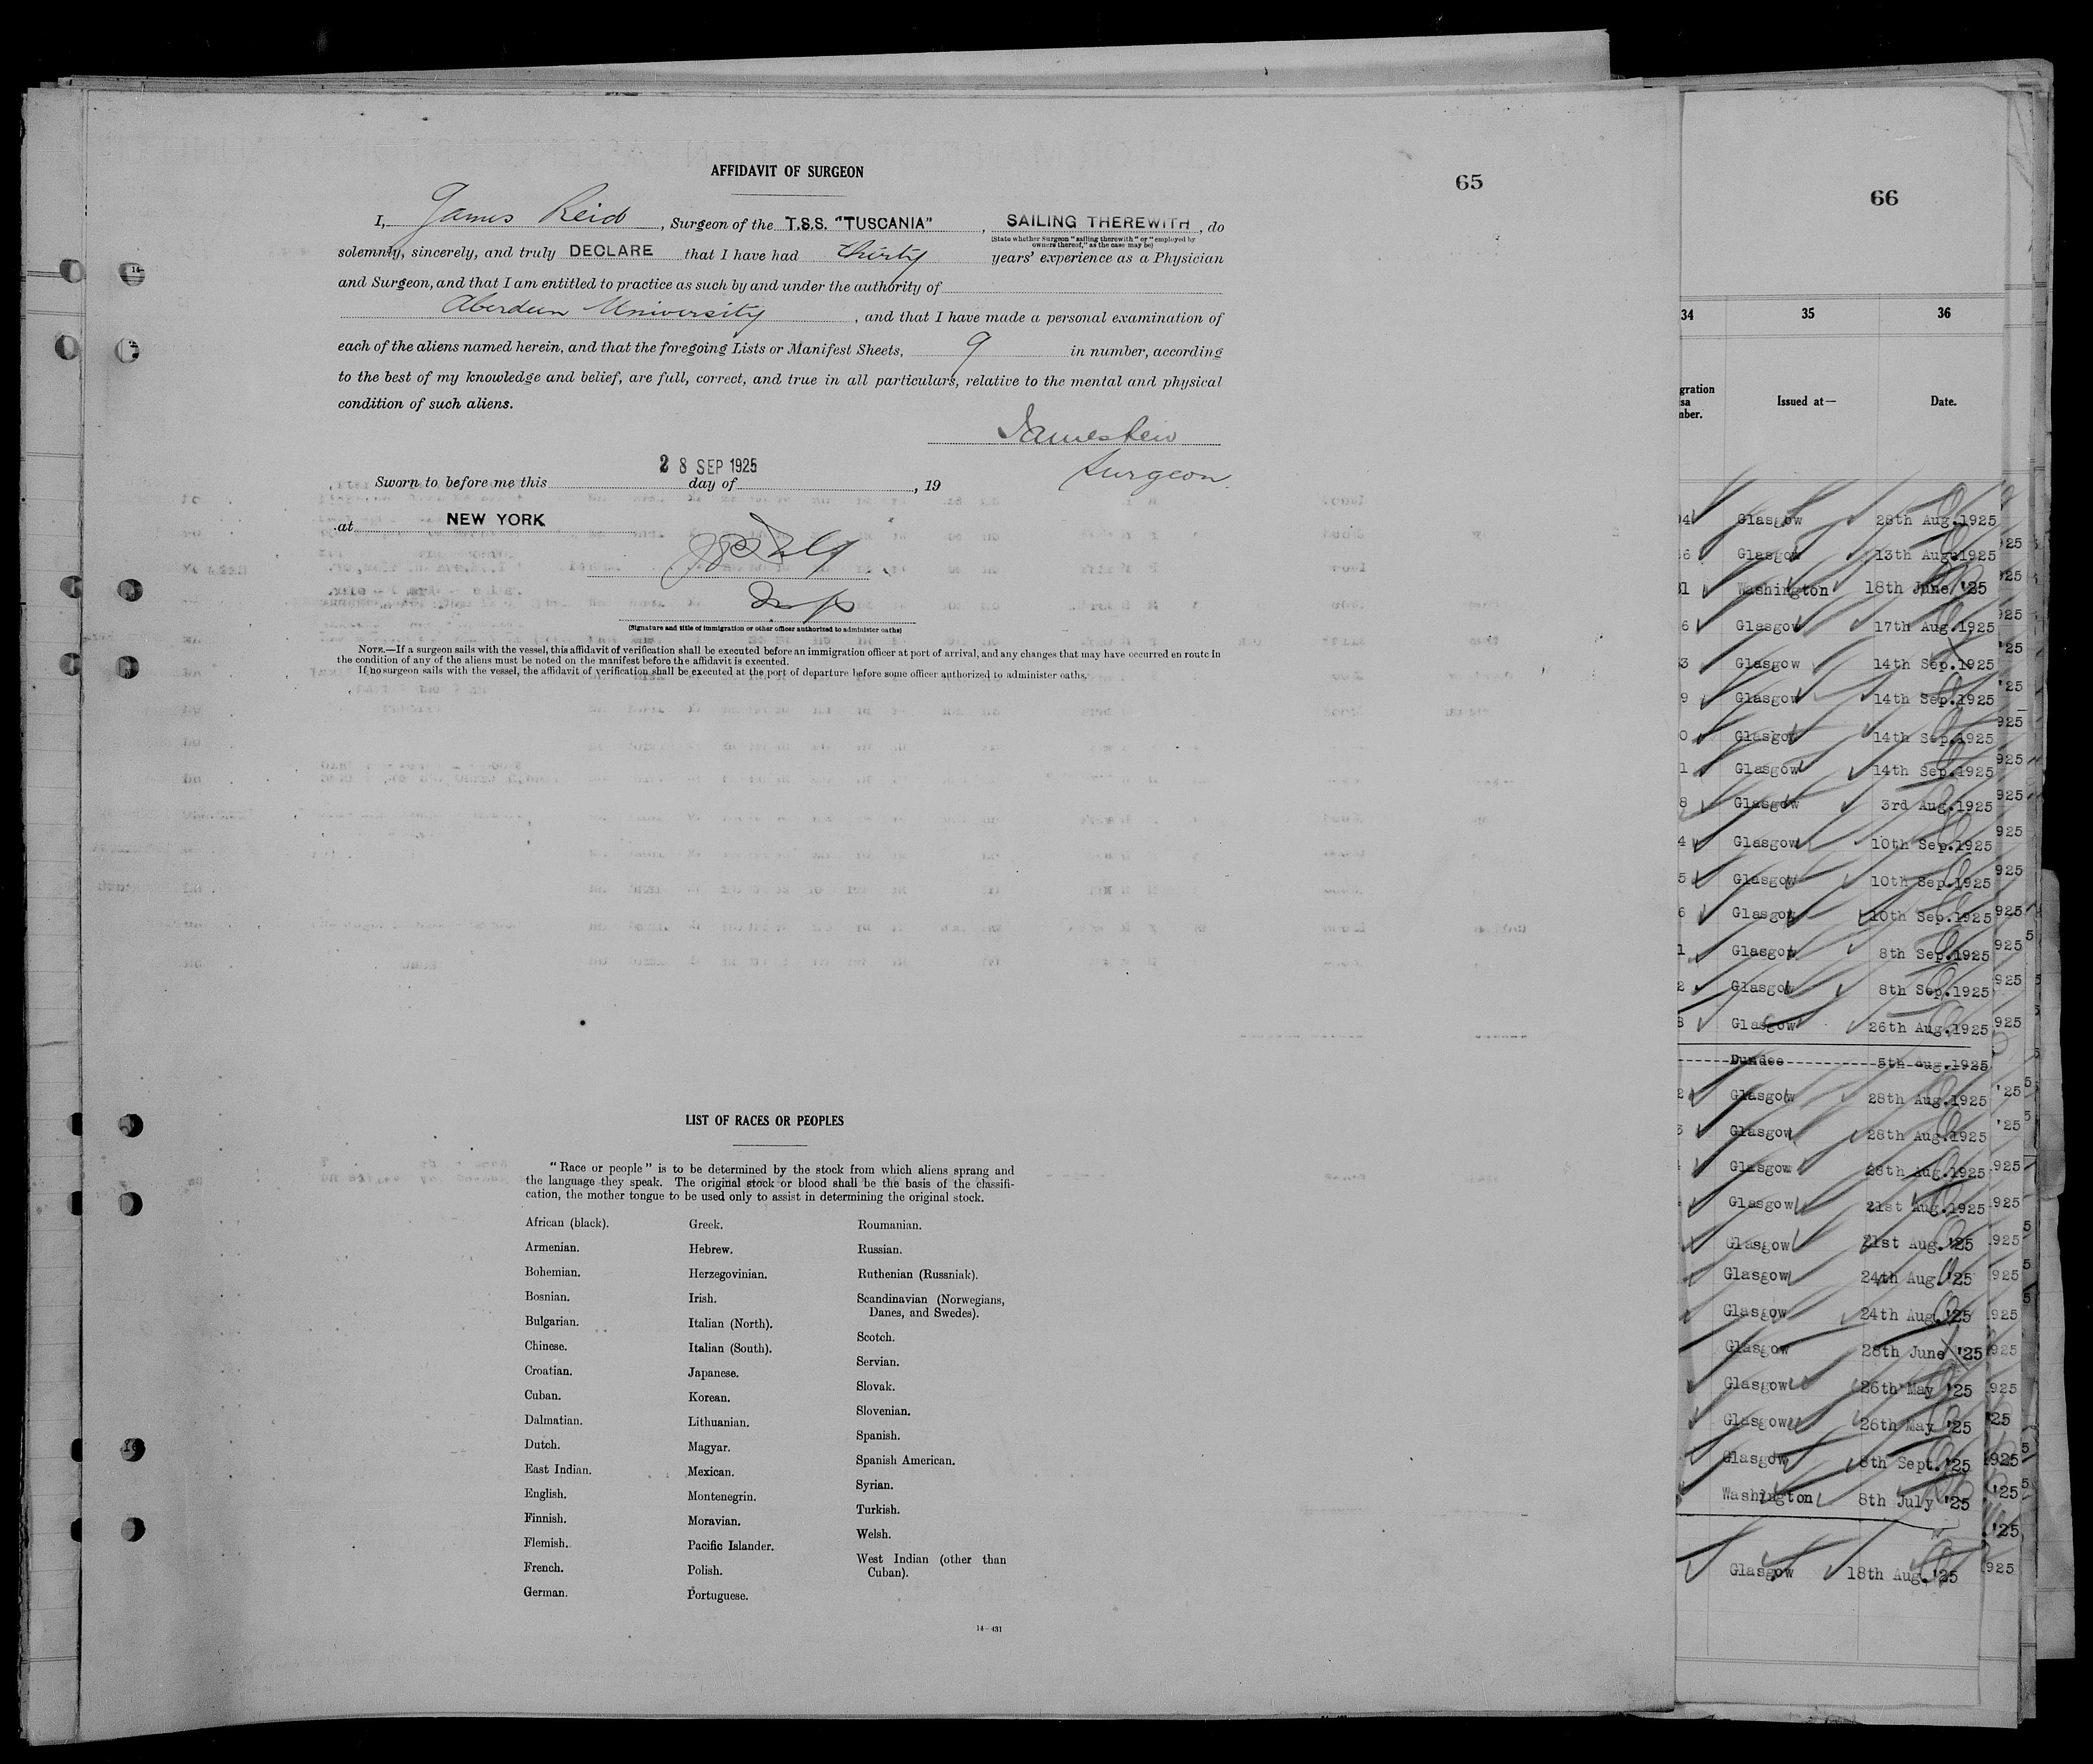 AFFIDAVIT OF SURGEON
65
I, James Reid, Surgeon of the T.S.S. "TUSCANIA", SAILING THEREWITH, do
(State whether Surgeon "sailing therewith" or "employed by
owners thereof," as the case may be)
solemnly, sincerely, and truly DECLARE that I have had thirty years' experience as a Physician
and Surgeon, and that I am entitled to practice as such by and under the authority of
Aberdeen University, and that I have made a personal examination of
each of the aliens named herein, and that the foregoing Lists or Manifest Sheets, 9 in number, according
to the best of my knowledge and belief, are full, correct, and true in all particulars, relative to the mental and physical
condition of such aliens.
James Reid
Surgeon.
28 SEP 1925
Sworn to before me this day of , 19
at NEW YORK
Insp
(Signature and title of immigration or other officer authorized to administer oaths)
NOTE.—If a surgeon sails with the vessel, this affidavit of verification shall be executed before an immigration officer at port of arrival, and any changes that may have occurred en route in
the condition of any of the aliens must be noted on the manifest before the affidavit is executed.
If no surgeon sails with the vessel, the affidavit of verification shall be executed at the port of departure before some officer authorized to administer oaths.
LIST OF RACES OR PEOPLES
"Race or people" is to be determined by the stock from which aliens sprang and
the language they speak. The original stock or blood shall be the basis of the classifi-
cation, the mother tongue to be used only to assist in determining the original stock.
African (black).
Armenian.
Bohemian.
Bosnian.
Bulgarian.
Chinese.
Croatian.
Cuban.
Dalmatian.
Dutch.
East Indian.
English.
Finnish.
Flemish.
French.
German.
Greek.
Hebrew.
Herzegovinian.
Irish.
Italian (North).
Italian (South).
Japanese.
Korean.
Lithuanian.
Magyar.
Mexican.
Montenegrin.
Moravian.
Pacific Islander.
Polish.
Portuguese.
Roumanian.
Russian.
Ruthenian (Russniak).
Scandinavian (Norwegians,
Danes, and Swedes).
Scotch.
Servian.
Slovak.
Slovenian.
Spanish.
Spanish American.
Syrian.
Turkish.
Welsh.
West Indian (other than
Cuban).
14—431
66
34 35 36
Issued at— Date.
Glasgow 28th Aug.1925
Glasgow 13th Aug.1925
Washington 18th June '25
Glasgow 17th Aug.1925
Glasgow 14th Sep.1925
Glasgow 14th Sep.1925
Glasgow 14th Sep.1925
Glasgow 14th Sep.1925
Glasgow 3rd Aug.1925
Glasgow 10th Sep.1925
Glasgow 10th Sep.1925
Glasgow 10th Sep.1925
Glasgow 8th Sep.1925
Glasgow 8th Sep.1925
Glasgow 26th Aug.1925
Dundee 5th Aug.1925
Glasgow 28th Aug.1925
Glasgow 28th Aug.1925
Glasgow 28th Aug.1925
Glasgow 21st Aug.1925
Glasgow 21st Aug.'25
Glasgow 24th Aug.'25
Glasgow 24th Aug.'25
Glasgow 28th June '25
Glasgow 26th May '25
Glasgow 26th May '25
Glasgow 8th Sept.'25
Washington 8th July '25
Glasgow 18th Aug.'25